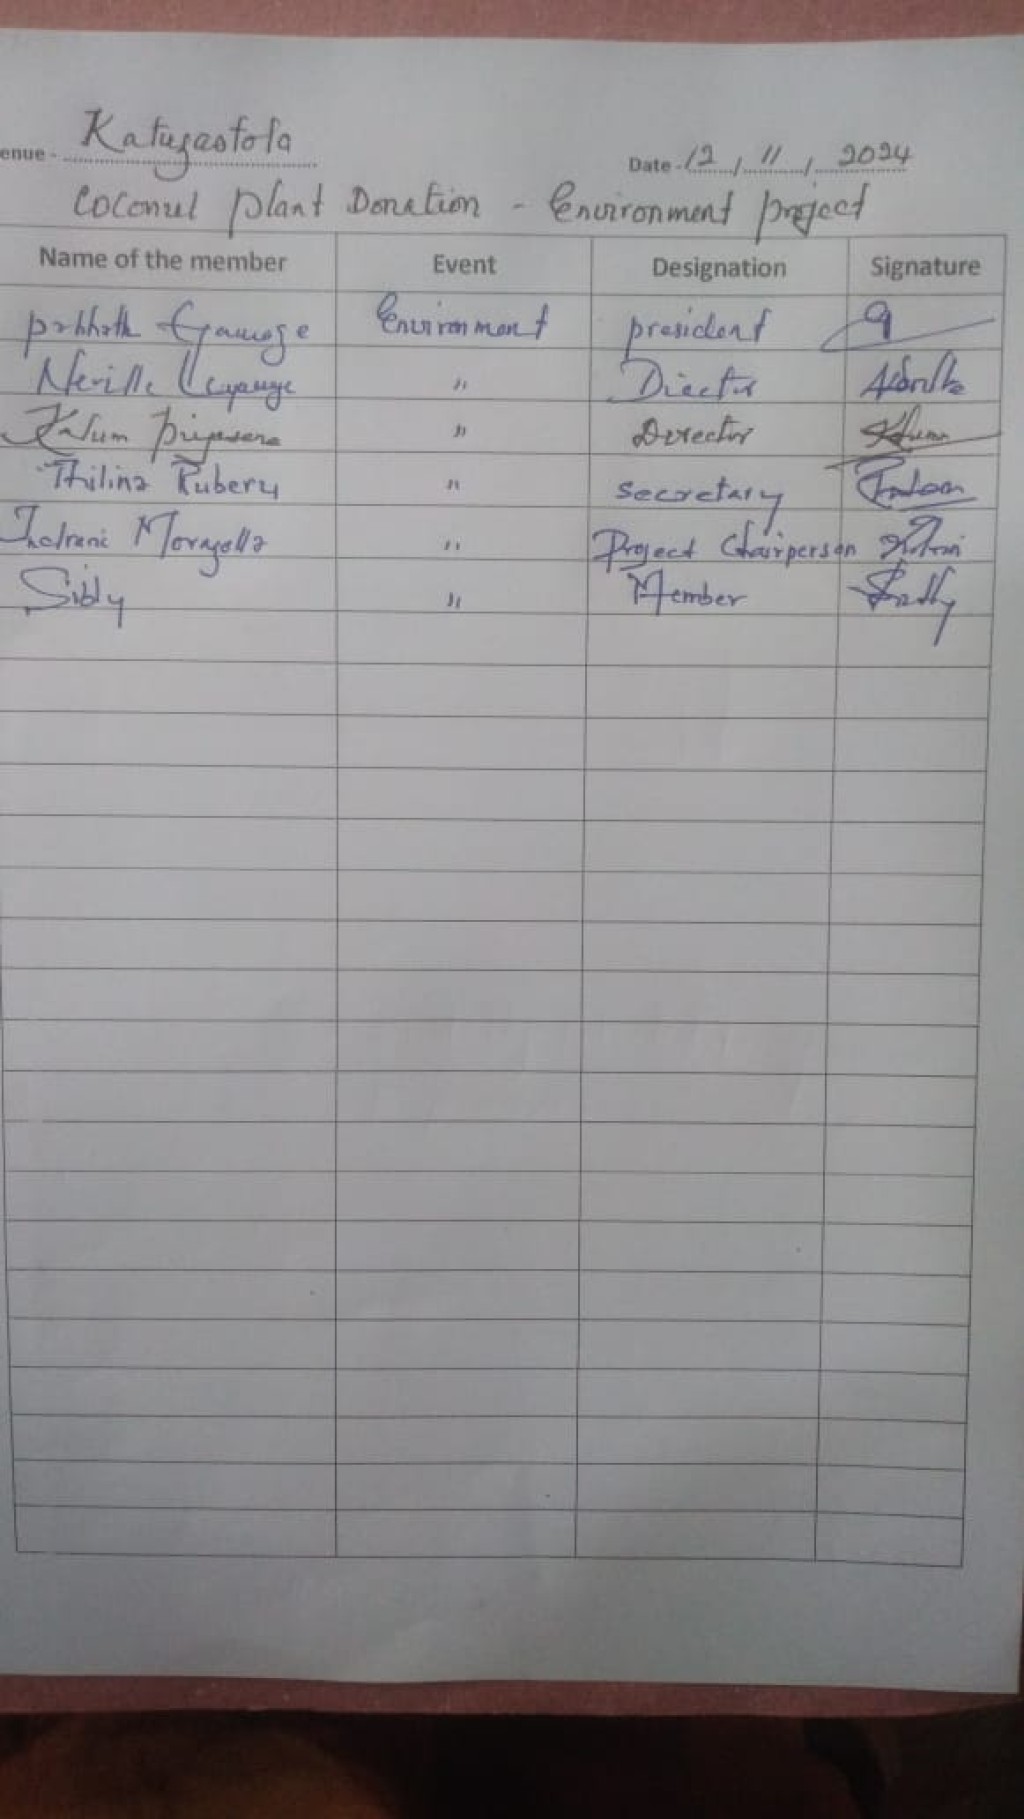 enue - Katugastota
Date - 12 / 11 / 2024
Coconut plant Donation - Environment project
Name of the member Event Designation Signature
prbhath Gamage Environment president
Neville Director
Kalum Priyasena " Director
Thilina Rubery " secretary
Indrani Moragolla " Project Chairperson
Sibly " Member